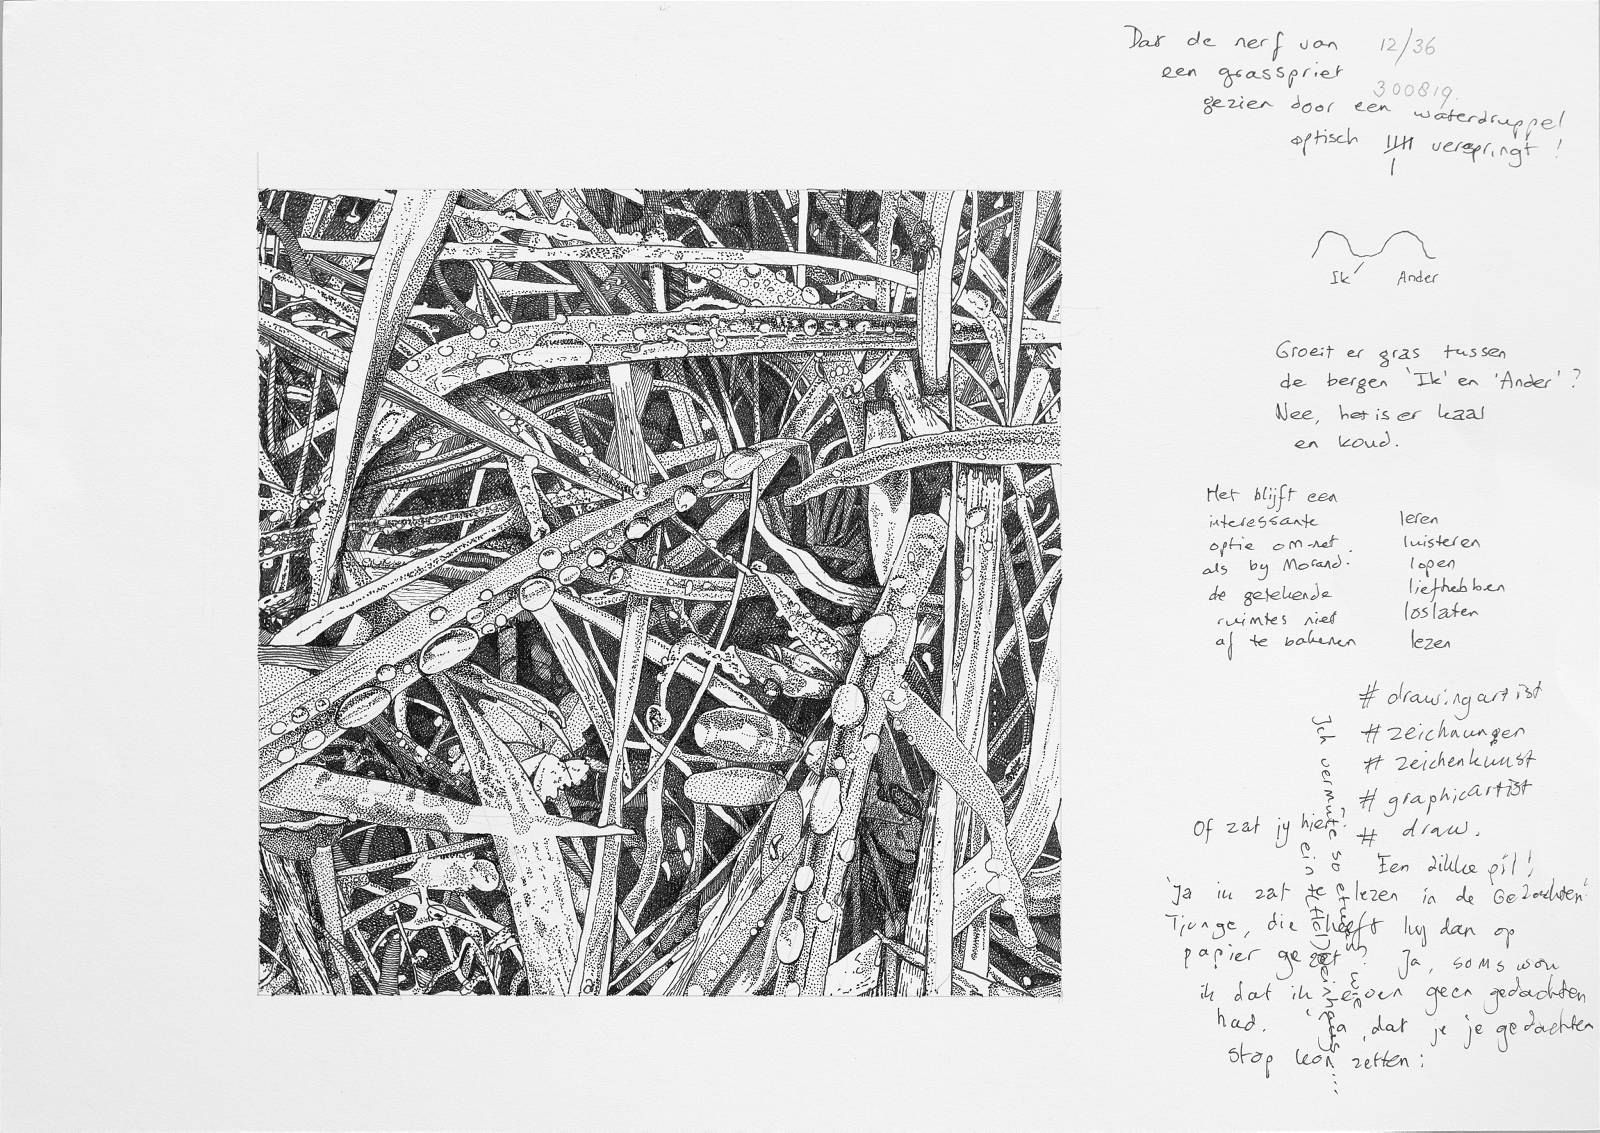 Dat de nerf van
12/36
een grasspriet
300819.
gezien door een waterdruppel
optisch verspringt !
Ik
Ander
Groeit er gras tussen
de bergen 'Ik' en 'Ander' ?
Nee, het is er kaal
en koud.
Het blijft een
interessante
optie om net
als by Morandi
de getekende
ruimtes niet
af te bakenen
leren
luisteren
lopen
liefhebben
loslaten
lezen
# drawingartist
# zeichnungen
# zeichenkunst
# graphicartist
# draw.
Ich vermute so etwas wie
ein
Of zat jy hier?
Een dikke pil !
'Ja ik zat te lezen in de Gedachten'
Tjonge, die heeft hy dan op
papier gezet ? Ja, soms wou
ik dat ik even geen gedachten
had. 'Ja, dat je je gedachten
stop kon zetten :